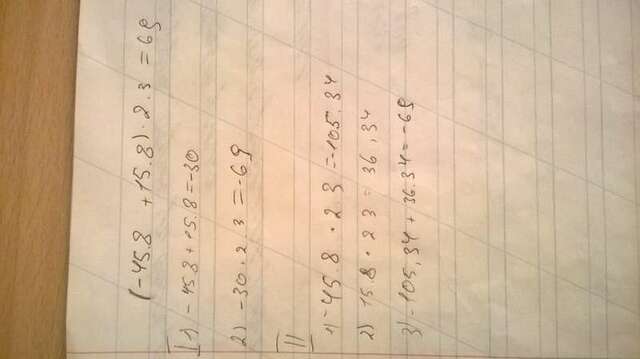 (-45.8 + 15.8) · 2.3 = 69
I 1) -45.8 + 15.8 = -30
2) -30 · 2.3 = -69
II
1) -45.8 · 2.3 = -105.34
2) 15.8 · 2.3 = 36.34
3) -105,34 + 36.34 = -69